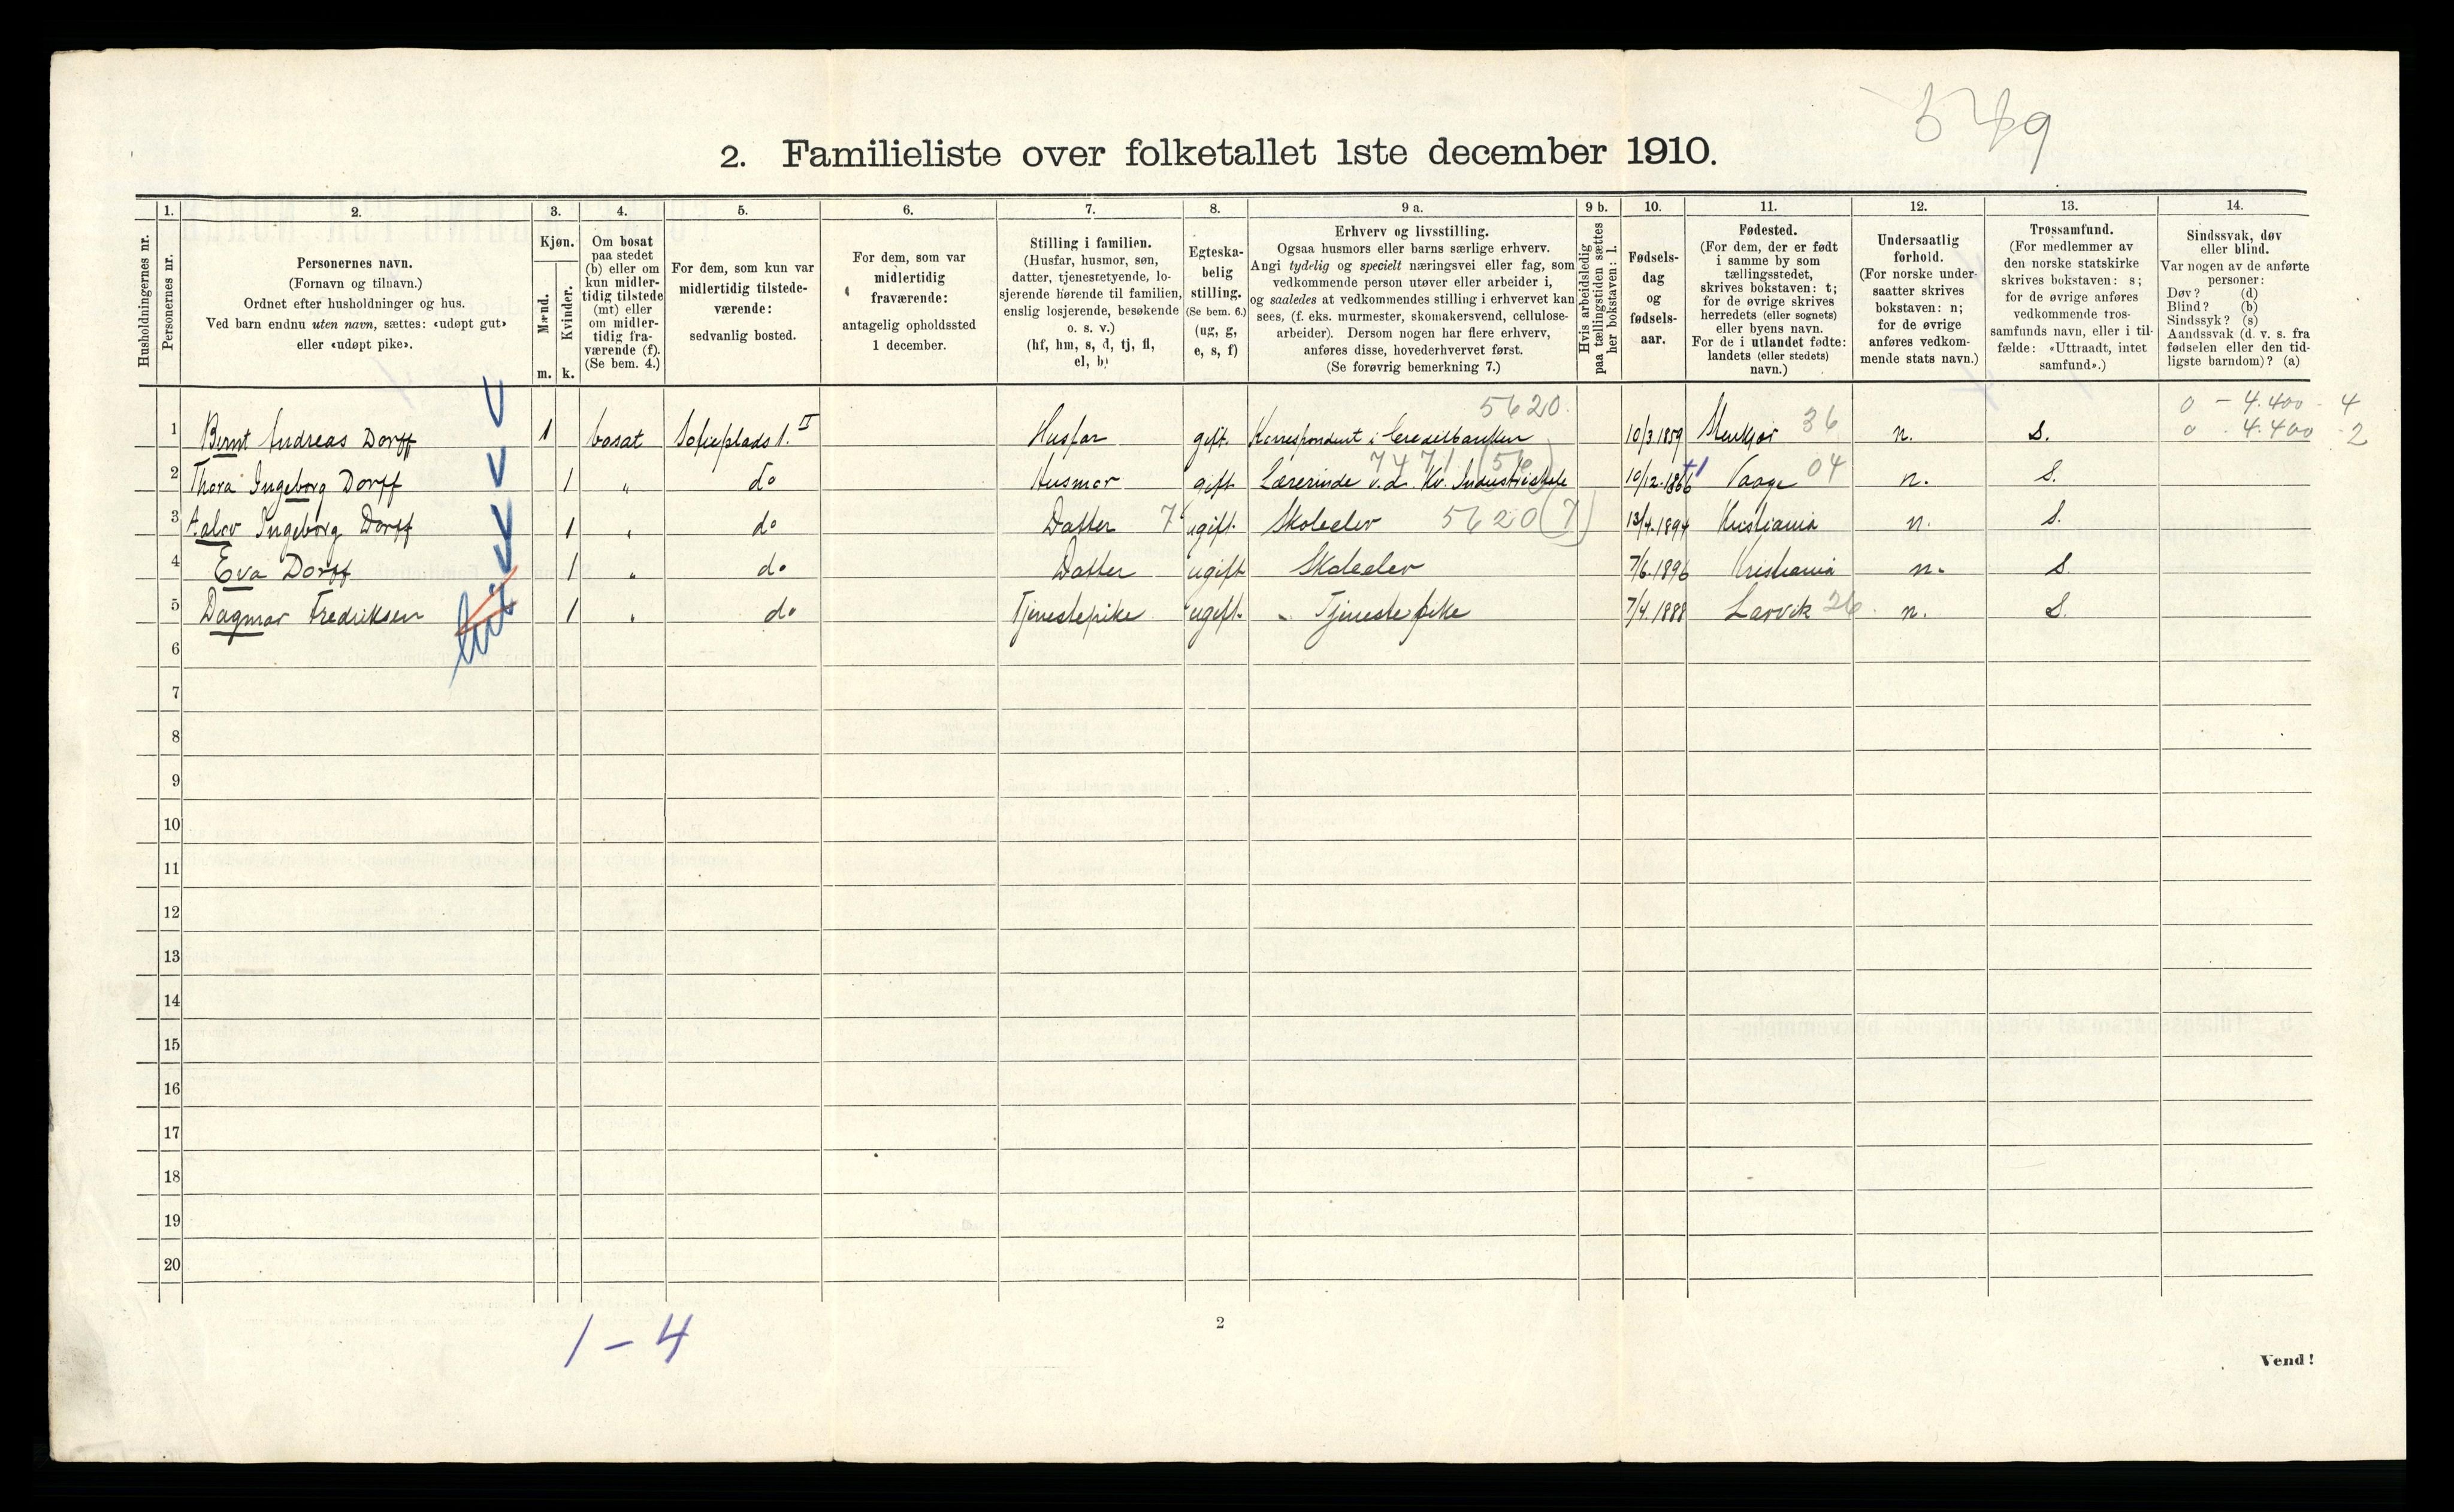 549
2. Familieliste over folketallet 1ste december 1910.
Husholdningernes nr.
1.
Personernes nr.
2.
Personernes navn.
(Fornavn og tilnavn.)
Ordnet efter husholdninger og hus.
Ved barn endnu uten navn, sættes: «udøpt gut»
eller «udøpt pike».
3.
Kjøn.
Mænd.
Kvinder.
m. k.
4.
Om bosat
paa stedet
(b) eller om
kun midler-
tidig tilstede
(mt) eller
om midler-
tidig fra-
værende (f).
(Se bem. 4.)
5.
For dem, som kun var
midlertidig tilstede-
værende:
sedvanlig bosted.
6.
For dem, som var
midlertidig
fraværende:
antagelig opholdssted
1 december.
7.
Stilling i familien.
(Husfar, husmor, søn,
datter, tjenestetyende, lo-
sjerende hørende til familien,
enslig losjerende, besøkende
o. s. v.)
(hf, hm, s, d, tj, fl,
el, b)
8.
Egteska-
belig
stilling.
(Se bem. 6.)
(ug, g,
e, s, f)
9 a.
Erhverv og livsstilling.
Ogsaa husmors eller barns særlige erhverv.
Angi tydelig og specielt næringsvei eller fag, som
vedkommende person utøver eller arbeider i,
og saaledes at vedkommendes stilling i erhvervet kan
sees, (f. eks. murmester, skomakersvend, cellulose-
arbeider). Dersom nogen har flere erhverv,
anføres disse, hovederhvervet først.
(Se forøvrig bemerkning 7.)
9 b.
Hvis arbeidsledig
paa tællingstiden sættes
her bokstaven: l.
10.
Fødsels-
dag
og
fødsels-
aar.
11.
Fødested.
(For dem, der er født
i samme by som
tællingsstedet,
skrives bokstaven: t;
for de øvrige skrives
herredets (eller sognets)
eller byens navn.
For de i utlandet fødte:
landets (eller stedets)
navn.)
12.
Undersaatlig
forhold.
(For norske under-
saatter skrives
bokstaven: n;
for de øvrige
anføres vedkom-
mende stats navn.)
13.
Trossamfund.
(For medlemmer av
den norske statskirke
skrives bokstaven: s;
for de øvrige anføres
vedkommende tros-
samfunds navn, eller i til-
fælde: «Uttraadt, intet
samfund».)
14.
Sindssvak, døv
eller blind.
Var nogen av de anførte
personer:
Døv? (d)
Blind? (b)
Sindssyk? (s)
Aandssvak (d. v. s. fra
fødselen eller den tid-
ligste barndom)? (a)
5620. 0 - 4.400 - 4
1 Bernt Andreas Dorff 1 bosat Sofieplads 1. II Husfar gift. Korrespondent i Creditbanken 10/3.1859 Stenkjær 36 n. S. 0 - 4.400 - 2
7471 (56)
2 Thora Ingeborg Dorff 1 " do Husmor gift. Lærerinde v.d. Kv. Industriskole 10/12.1866 Vaage 04 n. S.
3 Aslov Ingeborg Dorff 1 " do Datter 7 ugift. Skoleelev 5620 (7) 13/4.1894 Kristiania n. S.
4 Eva Dorff 1 " do Datter ugift Skoleelev 7/6.1896 Kristiania n. S.
5 Dagmar Fredriksen 1 " do Tjenestepike ugift. Tjenestepike 7/4.1888 Larvik 26. n. S.
6
7
8
9
10
11
12
13
14
15
16
17
18
19
20
1 - 4
2
Vend!